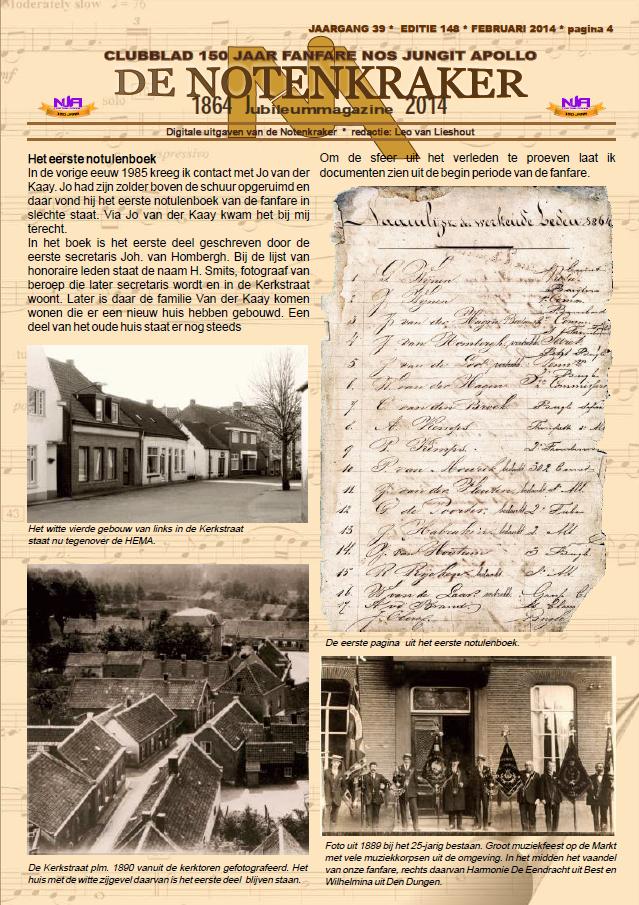 Moderately slow = 76
JAARGANG 39 * EDITIE 148 * FEBRUARI 2014 * pagina 4
CLUBBLAD 150 JAAR FANFARE NOS JUNGIT APOLLO
DE NOTENKRAKER
1864 Jubileummagazine 2014
NJA
150 JAAR
NJA
150 JAAR
Digitale uitgaven van de Notenkraker * redactie: Leo van Lieshout
Het eerste notulenboek
In de vorige eeuw 1985 kreeg ik contact met Jo van der
Kaay. Jo had zijn zolder boven de schuur opgeruimd en
daar vond hij het eerste notulenboek van de fanfare in
slechte staat. Via Jo van der Kaay kwam het bij mij
terecht.
In het boek is het eerste deel geschreven door de
eerste secretaris Joh. van Hombergh. Bij de lijst van
honoraire leden staat de naam H. Smits, fotograaf van
beroep die later secretaris wordt en in de Kerkstraat
woont. Later is daar de familie Van der Kaay komen
wonen die er een nieuw huis hebben gebouwd. Een
deel van het oude huis staat er nog steeds
Het witte vierde gebouw van links in de Kerkstraat
staat nu tegenover de HEMA.
De Kerkstraat plm. 1890 vanuit de kerktoren gefotografeerd. Het
huis met de witte zijgevel daarvan is het eerste deel blijven staan.
Om de sfeer uit het verleden te proeven laat ik
documenten zien uit de begin periode van de fanfare.
Naamlijst der werkende Leden 1864
1
2 J. Rijnen
3 J. van der Hagen
4 J. van Hombergh
5
6 van der Hagen
7 van den Broek
8 A. Kemps
9 P. Kemps
10 P. van Mourik
11
12 G. de Poorter
13
14 van Hootum
15
16 W. van de Laar
17
De eerste pagina uit het eerste notulenboek.
Foto uit 1889 bij het 25-jarig bestaan. Groot muziekfeest op de Markt
met vele muziekkorpsen uit de omgeving. In het midden het vaandel
van onze fanfare, rechts daarvan Harmonie De Eendracht uit Best en
Wilhelmina uit Den Dungen.